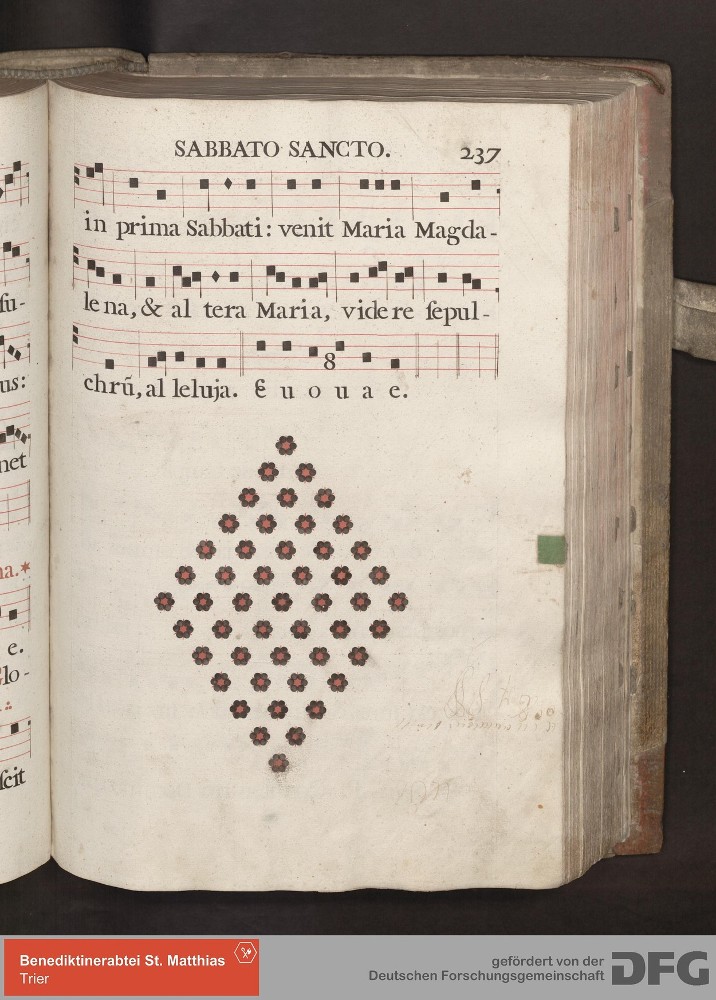 SABBATO SANCTO. 237
in prima Sabbati: venit Maria Magda-
lena, & al tera Maria, videre ſepul-
8
chrũ, al leluja. E u o u a e.
ſu-
us:
net
na.*
e.
lo-
ſcit
Benediktinerabtei St. Matthias
Trier
gefördert von der
Deutschen Forschungsgemeinschaft
DFG